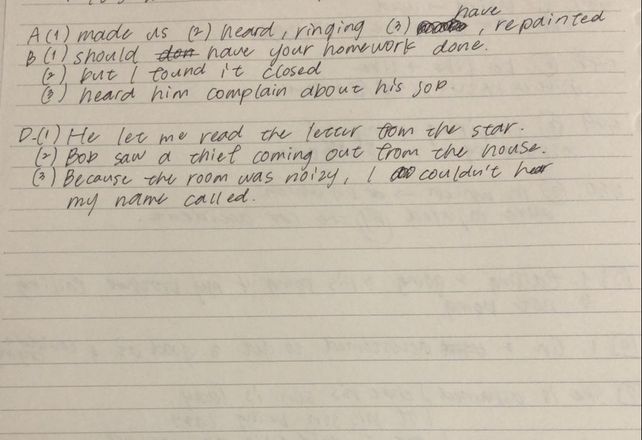 A (1) made us (2) heard, ringing (3) have, repainted
B (1) should have your homework done.
(2) but I found it closed
(3) heard him complain about his job
D-(1) He let me read the letter from the star.
(2) Bob saw a thief coming out from the house.
(3) Because the room was noizy, I couldn't hear
my name called.